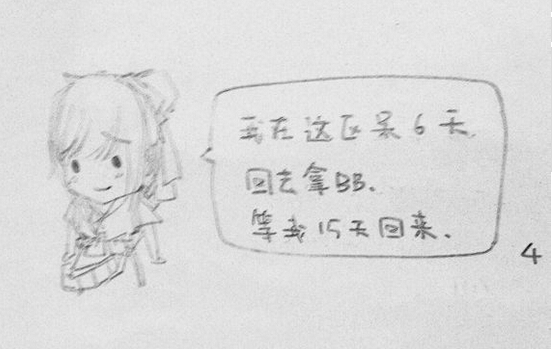 我在这区呆6天,
回去拿BB.
等我15天回来.
4